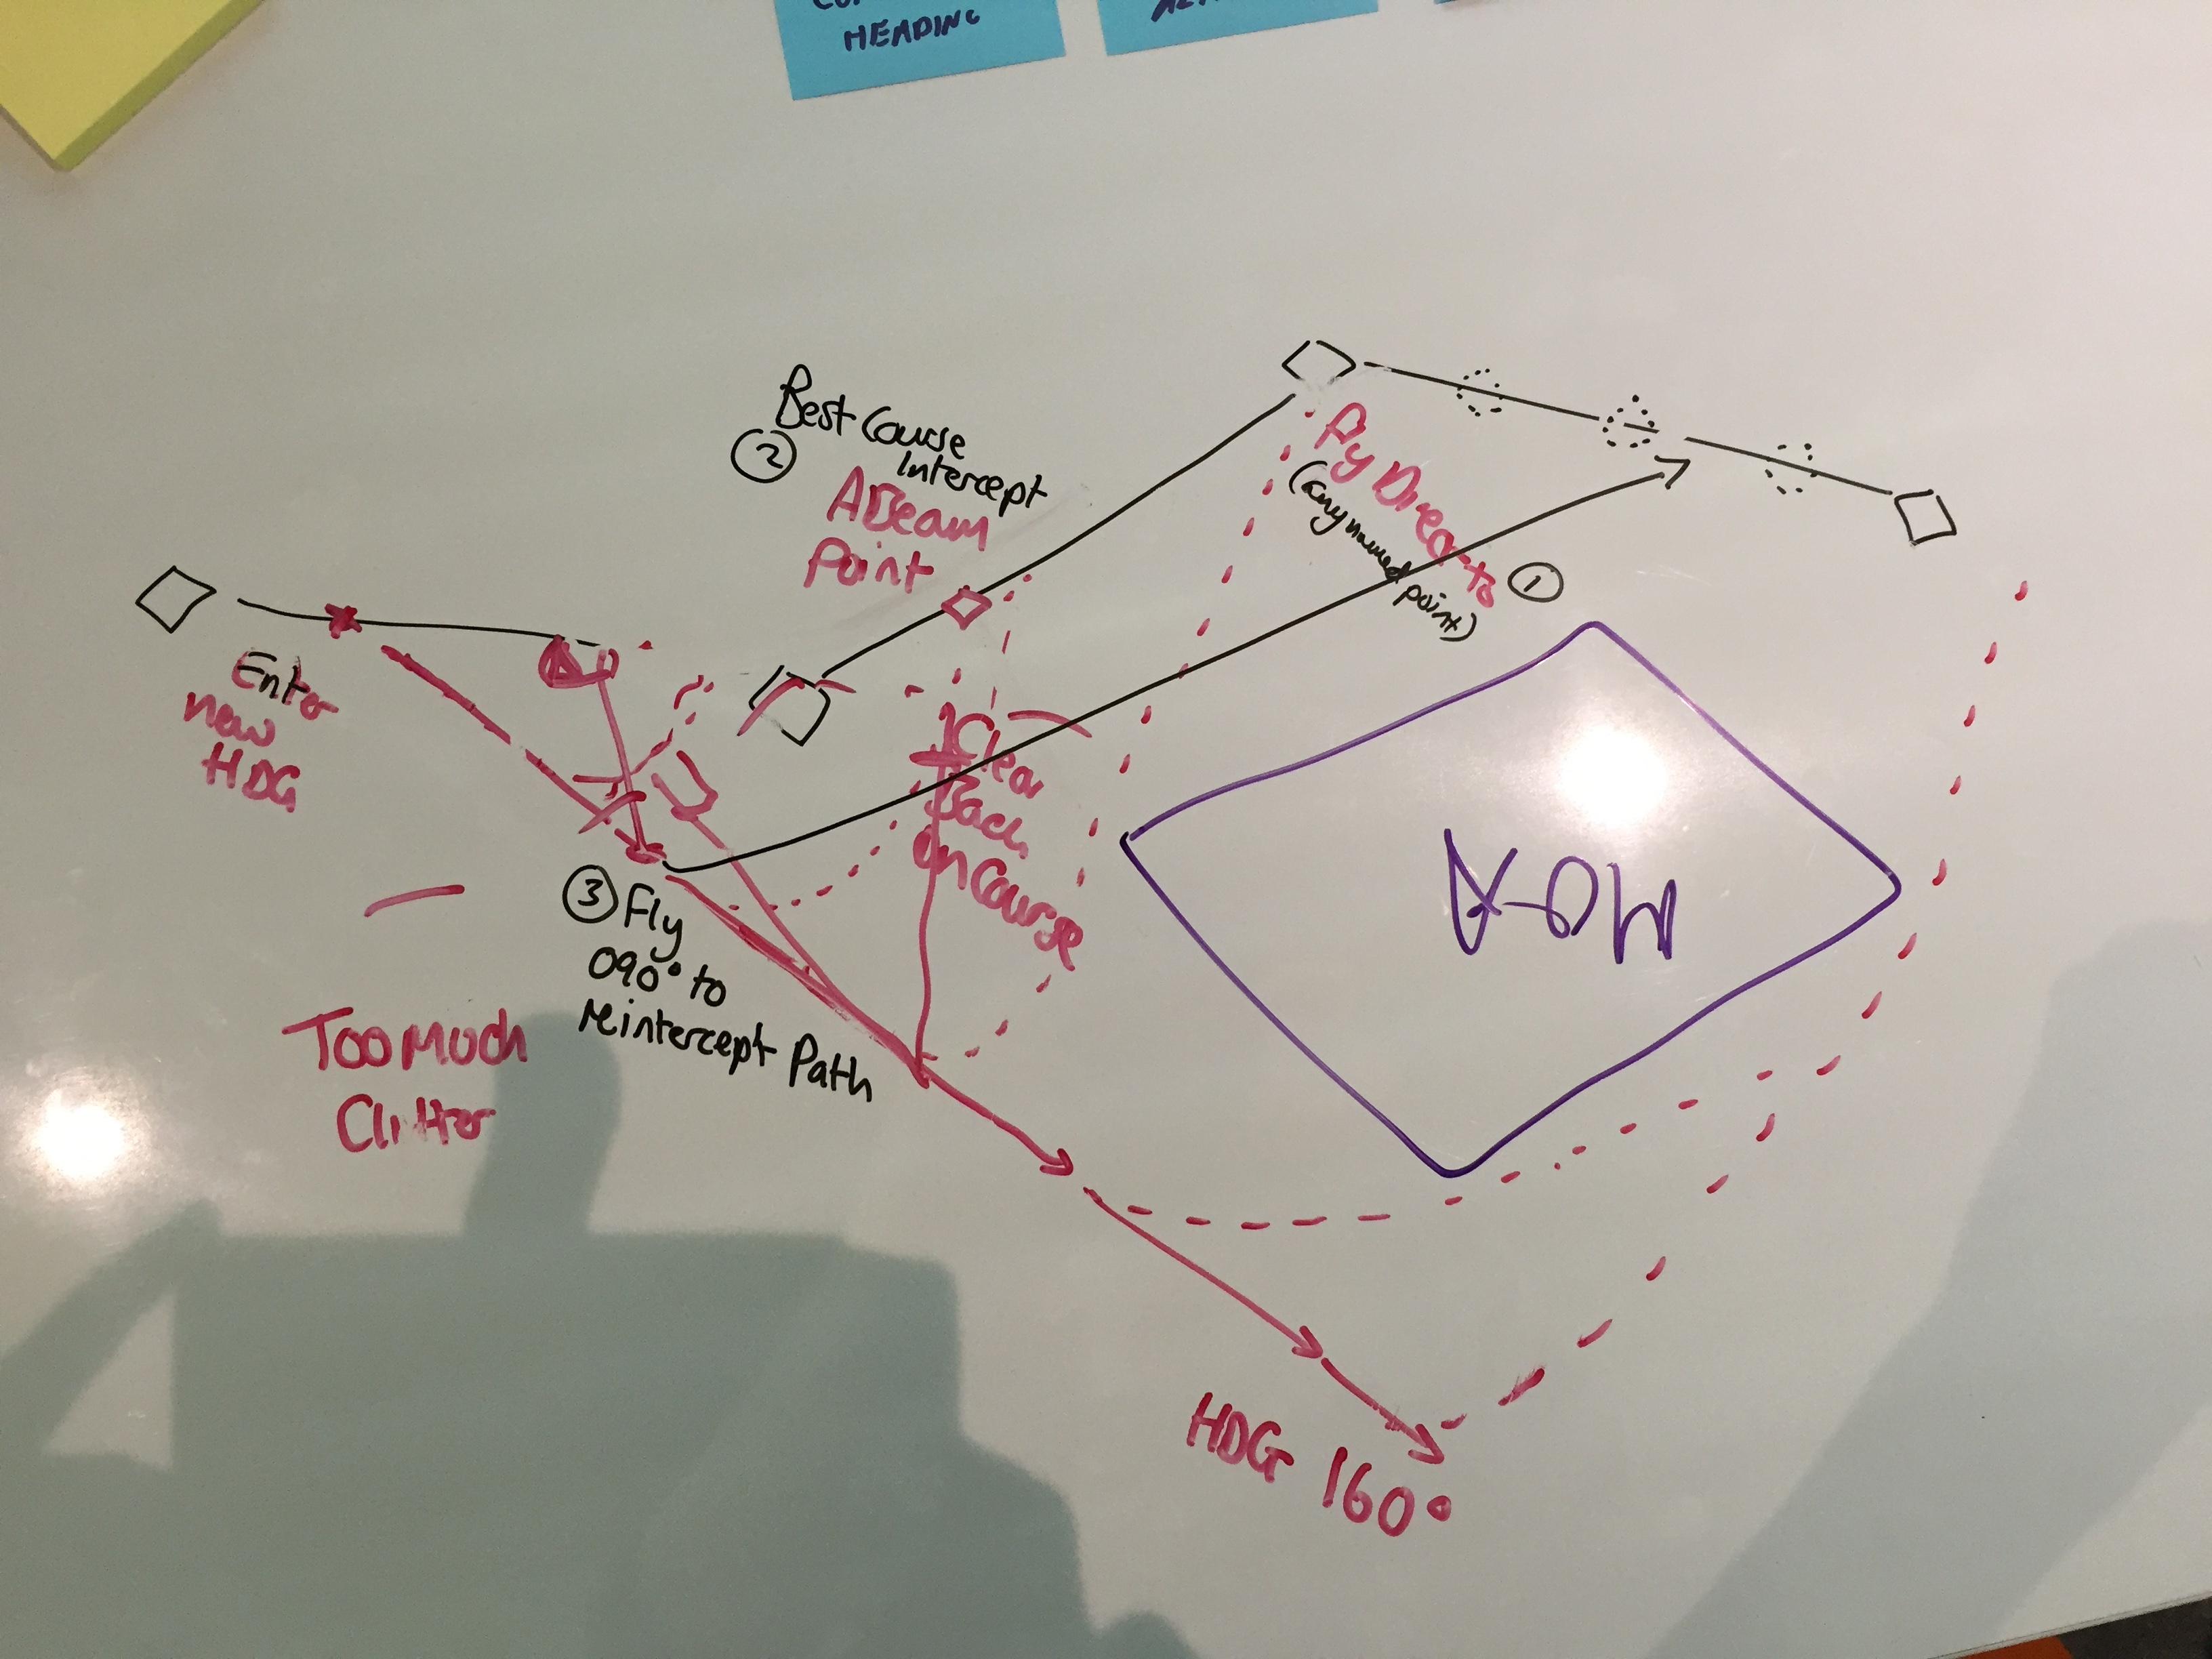 HEADING
Best Course
②
Intercept
ABeam
Point
Fly Direct to
①
(any named
point)
Enter
new
HDG
Clear
Back
on Course
MOA
③ Fly
090° to
reintercept Path
Too Much
Clutter
HDG 160°